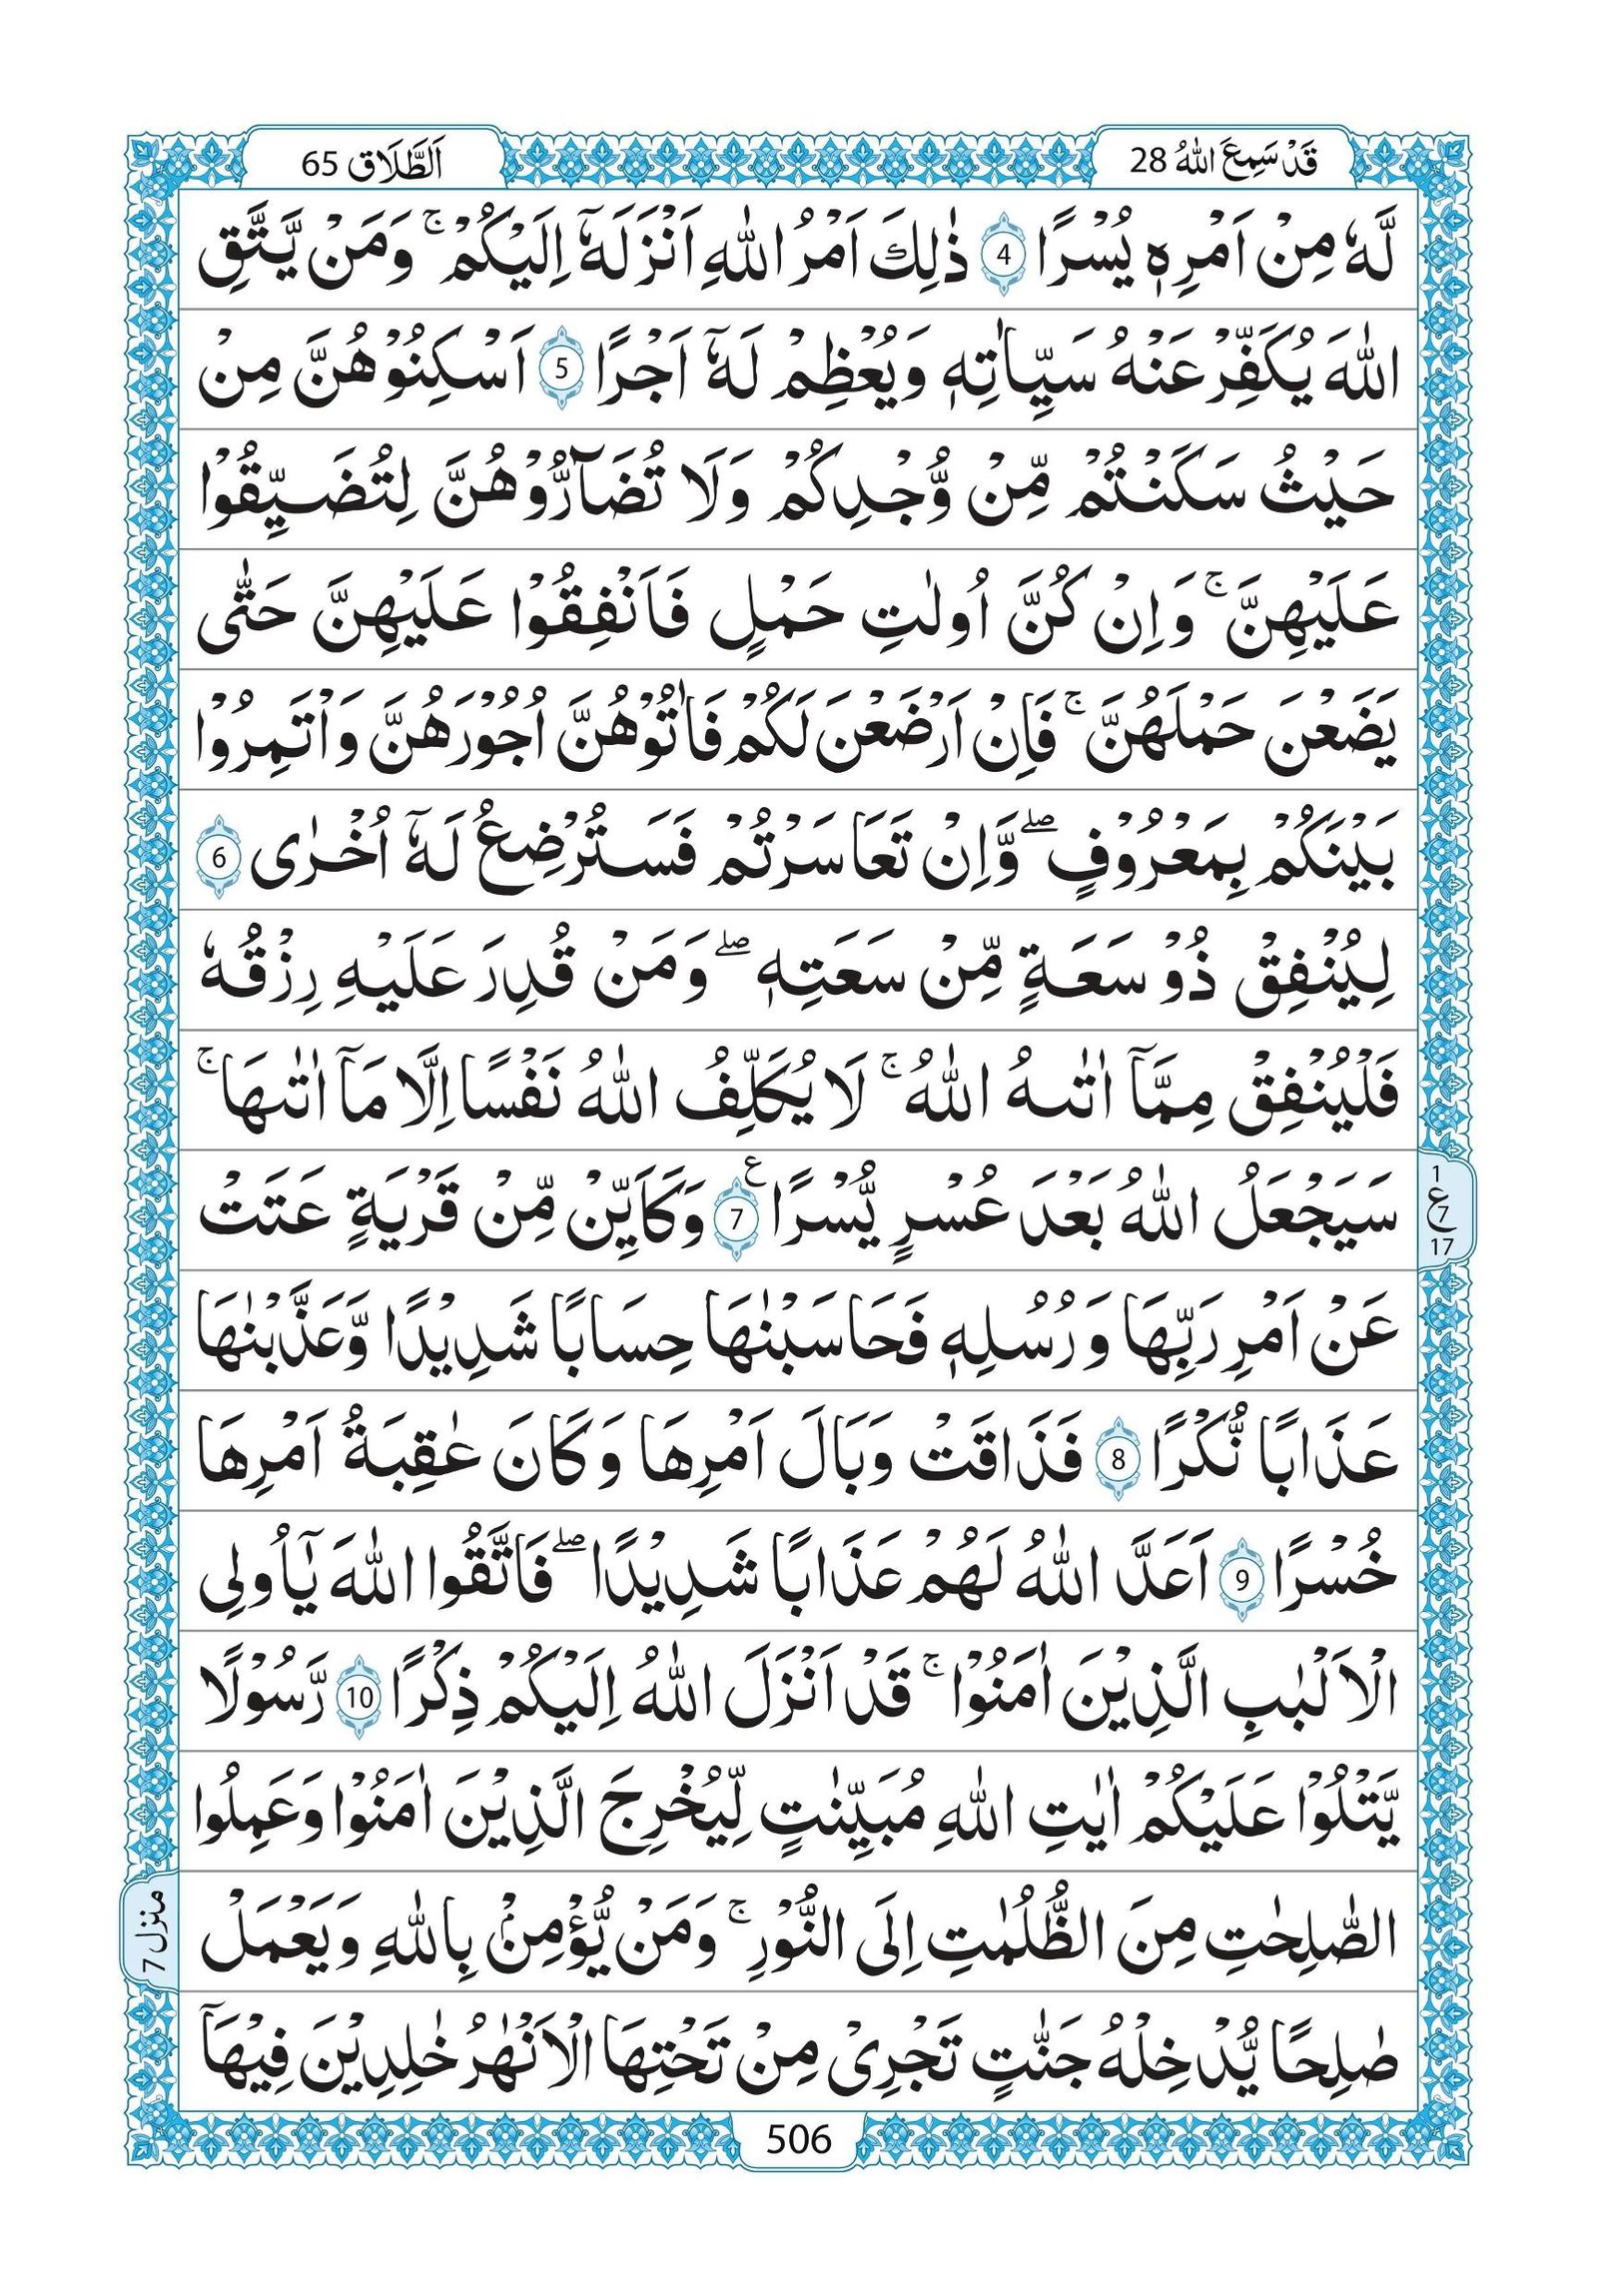 قَدْ سَمِعَ اللّٰهُ 28
اَلطَّلَاق 65
لَّهٗ مِنْ اَمْرِهٖ يُسْرًا 4 ذٰلِكَ اَمْرُ اللّٰهِ اَنْزَلَهٗۤ اِلَيْكُمْ ۚ وَمَنْ يَّتَّقِ
اللّٰهَ يُكَفِّرْ عَنْهُ سَيِّاٰتِهٖ وَيُعْظِمْ لَهٗۤ اَجْرًا 5 اَسْكِنُوْهُنَّ مِنْ
حَيْثُ سَكَنْتُمْ مِّنْ وُّجْدِكُمْ وَلَا تُضَآرُّوْهُنَّ لِتُضَيِّقُوْا
عَلَيْهِنَّ ۚ وَاِنْ كُنَّ اُولٰتِ حَمْلٍ فَاَنْفِقُوْا عَلَيْهِنَّ حَتّٰى
يَضَعْنَ حَمْلَهُنَّ ۚ فَاِنْ اَرْضَعْنَ لَكُمْ فَاٰتُوْهُنَّ اُجُوْرَهُنَّ وَاْتَمِرُوْا
بَيْنَكُمْ بِمَعْرُوْفٍ ۖ وَّاِنْ تَعَاسَرْتُمْ فَسَتُرْضِعُ لَهٗۤ اُخْرٰى 6
لِيُنْفِقْ ذُوْ سَعَةٍ مِّنْ سَعَتِهٖ ۖ وَمَنْ قُدِرَ عَلَيْهِ رِزْقُهٗ
فَلْيُنْفِقْ مِمَّاۤ اٰتٰىهُ اللّٰهُ ۚ لَا يُكَلِّفُ اللّٰهُ نَفْسًا اِلَّا مَاۤ اٰتٰىهَا ۚ
سَيَجْعَلُ اللّٰهُ بَعْدَ عُسْرٍ يُّسْرًا ع 7 وَكَاَيِّنْ مِّنْ قَرْيَةٍ عَتَتْ
1 ع 7 17
عَنْ اَمْرِ رَبِّهَا وَرُسُلِهٖ فَحَاسَبْنٰهَا حِسَابًا شَدِيْدًا وَّعَذَّبْنٰهَا
عَذَابًا نُّكْرًا 8 فَذَاقَتْ وَبَالَ اَمْرِهَا وَكَانَ عٰقِبَةُ اَمْرِهَا
خُسْرًا 9 اَعَدَّ اللّٰهُ لَهُمْ عَذَابًا شَدِيْدًا ۖ فَاتَّقُوا اللّٰهَ يٰۤاُولِى
الْاَلْبٰبِ الَّذِيْنَ اٰمَنُوْا ۚ قَدْ اَنْزَلَ اللّٰهُ اِلَيْكُمْ ذِكْرًا 10 رَّسُوْلًا
يَّتْلُوْا عَلَيْكُمْ اٰيٰتِ اللّٰهِ مُبَيِّنٰتٍ لِّيُخْرِجَ الَّذِيْنَ اٰمَنُوْا وَعَمِلُوا
الصّٰلِحٰتِ مِنَ الظُّلُمٰتِ اِلَى النُّوْرِ ۚ وَمَنْ يُّؤْمِنْۢ بِاللّٰهِ وَيَعْمَلْ
منزل 7
صٰلِحًا يُّدْخِلْهُ جَنّٰتٍ تَجْرِىْ مِنْ تَحْتِهَا الْاَنْهٰرُ خٰلِدِيْنَ فِيْهَاۤ
506